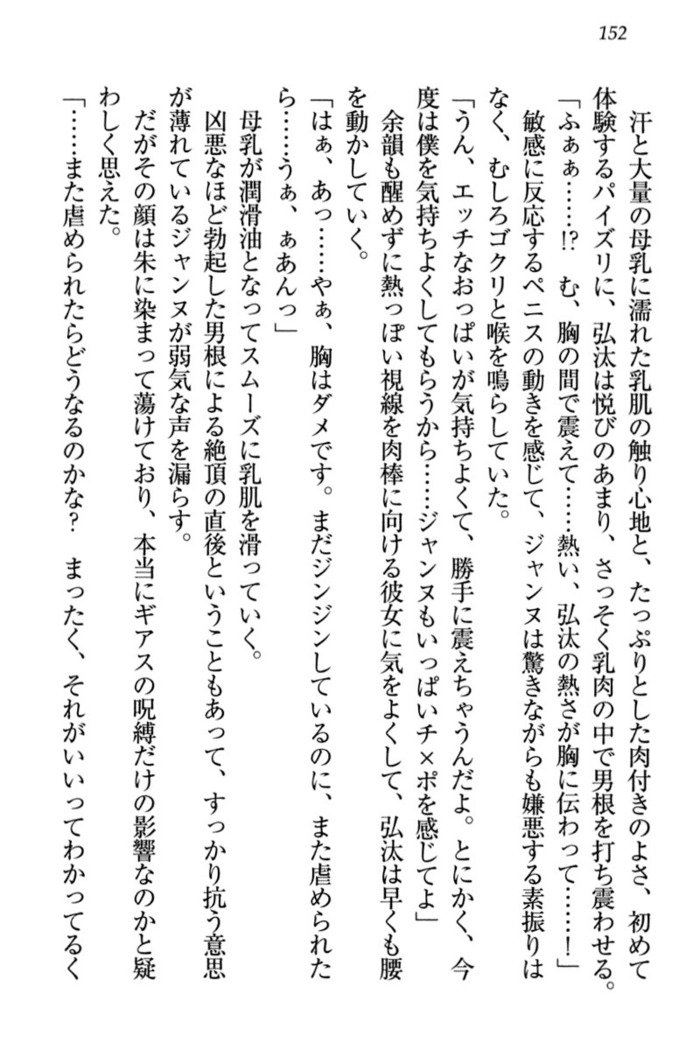 152
汗と大量の母乳に濡れた乳肌の触り心地と、たっぷりとした肉付きのよさ、初めて
体験するパイズリに、弘汰は悦びのあまり、さっそく乳肉の中で男根を打ち震わせる。
「ふぁぁ……!?　む、胸の間で震えて……熱い、弘汰の熱さが胸に伝わって……！」
敏感に反応するペニスの動きを感じて、ジャンヌは驚きながらも嫌悪する素振りは
なく、むしろゴクリと喉を鳴らしていた。
「うん、エッチなおっぱいが気持ちよくて、勝手に震えちゃうんだよ。とにかく、今
度は僕を気持ちよくしてもらうから……ジャンヌもいっぱいチ×ポを感じてよ」
余韻も醒めずに熱っぽい視線を肉棒に向ける彼女に気をよくして、弘汰は早くも腰
を動かしていく。
「はぁ、あっ……やぁ、胸はダメです。まだジンジンしているのに、また虐められた
ら……うぁ、ぁあんっ」
母乳が潤滑油となってスムーズに乳肌を滑っていく。
凶悪なほど勃起した男根による絶頂の直後ということもあって、すっかり抗う意思
が薄れているジャンヌが弱気な声を漏らす。
だがその顔は朱に染まって蕩けており、本当にギアスの呪縛だけの影響なのかと疑
わしく思えた。
「……また虐められたらどうなるのかな？　まったく、それがいいってわかってるく